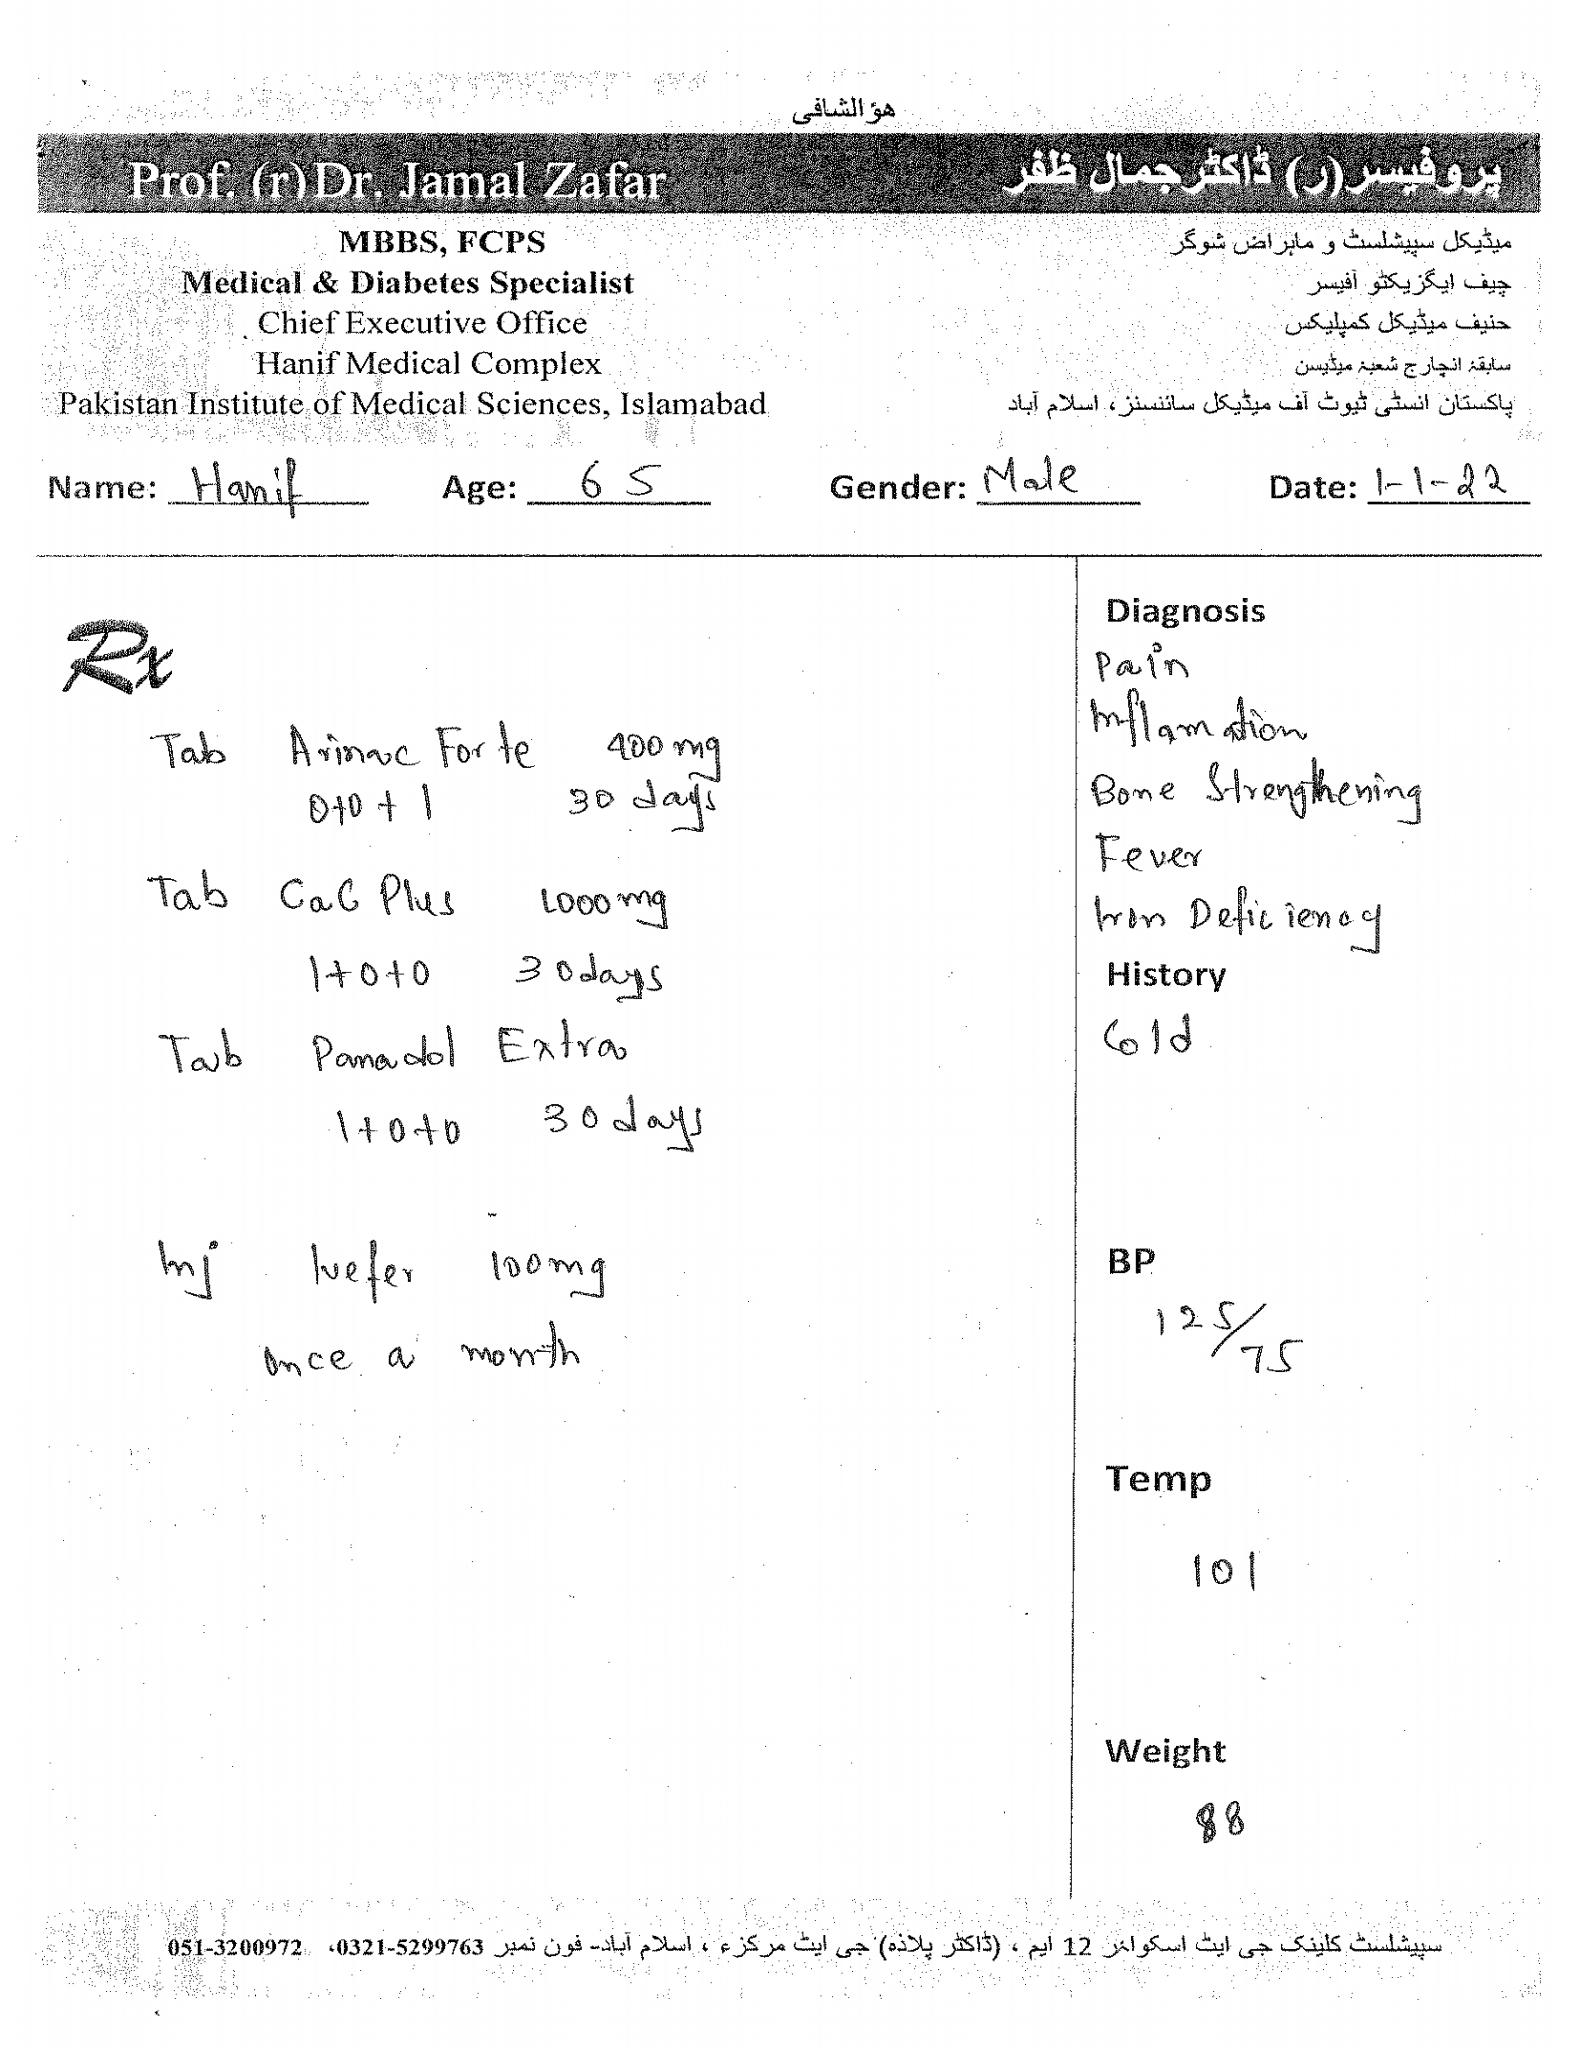 هؤالشافی
Prof. (r)Dr. Jamal Zafar
پروفیسر(ر) ڈاکٹرجمال ظفر
MBBS, FCPS
Medical & Diabetes Specialist
Chief Executive Office
Hanif Medical Complex
Pakistan Institute of Medical Sciences, Islamabad
میڈیکل سپیشلسٹ و ماہراض شوگر
چیف ایگزیکٹو آفیسر
حنیف میڈیکل کمپلیکس
سابقہ انچارج شعبہ میڈیسن
پاکستان انسٹی ٹیوٹ آف میڈیکل سائنسنز، اسلام آباد
Name: Hanif Age: 65 Gender: Male Date: 1-1-22
Rx
Tab Arinac Forte 400mg
0+0+1 30 days
Tab CaC Plus 1000mg
1+0+0 30days
Tab Panadol Extra
1+0+0 30days
Inj Ivefer 100mg
once a month
Diagnosis
Pain
Inflamation
Bone Strengthening
Fever
Iron Deficiency
History
Cold
BP
125/75
Temp
101
Weight
88
سپیشلسٹ کلینک جی ایٹ اسکوائر 12 ایم ، (ڈاکٹر پلاذہ) جی ایٹ مرکزء ، اسلام آباد- فون نمبر 0321-5299763، 051-3200972